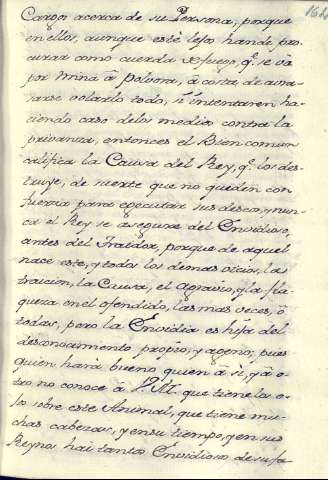 Cargos acerca de su Persona, porque
en ellos, aunque esté lejos han de pro
curar como cuerda de fuego, q.e se va
por mina à Polvora, à costa de
volarlo todo, si intentaren ha
ciendo caso delos medios contra la
privanza, entonces el Bien comun
califica la Causa del Rey, q.e los des
truye, de suerte que no queden con
fuerza para egecutar sus deseos, nun
ca el Rey se asegure del Envidioso,
antes del Traidor, porque de aquel
nace este, y todos los demas vicios, la
traicion, la Causa, el agravio, y la fla
queza en el ofendido, las mas veces, ò
todas, pero la Envidia es hija del
desconocimiento propio, y ageno, pues
quien hará bueno quien à si, y à o
tro no conoce à V.M. que tiene
sobre este Animal, que tiene mu
chas cabezas, y en su tiempo, y en sus
Reynos hai tantos Envidiosos de su fa